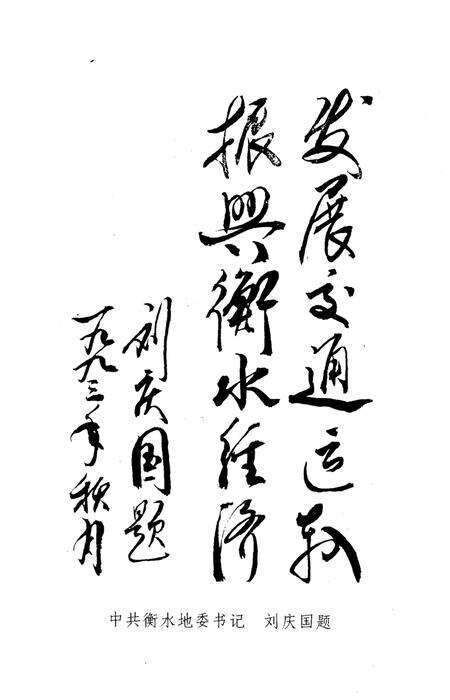 发展交通运输
振興衡水经济
刘庆国题
一九九三年秋月
中共衡水地委书记 刘庆国题